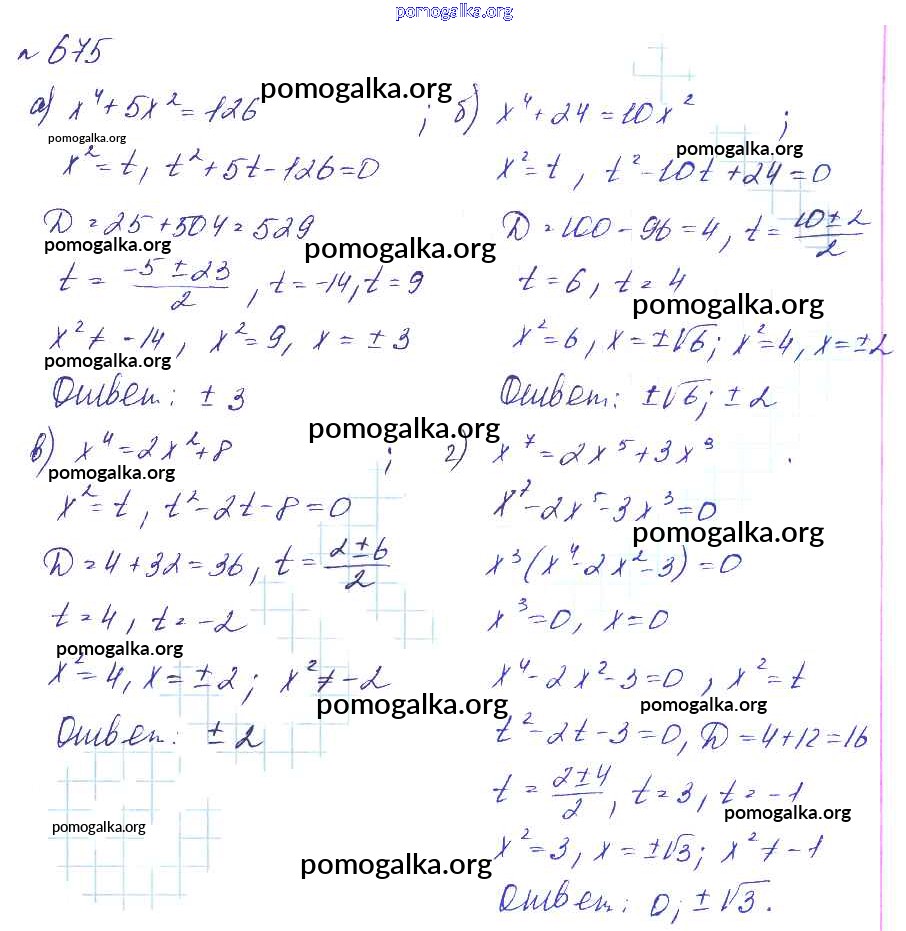 pomogalka.org
№ 675
а) x⁴ + 5x² = 126 ;
pomogalka.org
pomogalka.org
x² = t, t² + 5t - 126 = 0
D = 25 + 504 = 529
pomogalka.org
pomogalka.org
t = (-5 ± 23)/2 , t = -14, t = 9
x² ≠ -14, x² = 9, x = ±3
pomogalka.org
Ответ: ± 3
б) x⁴ + 24 = 10x² ;
pomogalka.org
x² = t, t² - 10t + 24 = 0
D = 100 - 96 = 4, t = (10 ± 2)/2
t = 6, t = 4
pomogalka.org
x² = 6, x = ±√6; x² = 4, x = ±2
Ответ: ±√6; ± 2
в) x⁴ = 2x² + 8 ;
pomogalka.org
pomogalka.org
x² = t, t² - 2t - 8 = 0
D = 4 + 32 = 36, t = (2 ± 6)/2
t = 4, t = -2
pomogalka.org
x² = 4, x = ±2; x² ≠ -2
pomogalka.org
Ответ: ± 2
pomogalka.org
pomogalka.org
г) x⁷ = 2x⁵ + 3x³ .
x⁷ - 2x⁵ - 3x³ = 0
pomogalka.org
x³(x⁴ - 2x² - 3) = 0
x³ = 0, x = 0
x⁴ - 2x² - 3 = 0, x² = t
pomogalka.org
t² - 2t - 3 = 0, D = 4 + 12 = 16
t = (2 ± 4)/2 , t = 3, t = -1
pomogalka.org
x² = 3, x = ±√3; x² ≠ -1
Ответ: 0; ±√3.